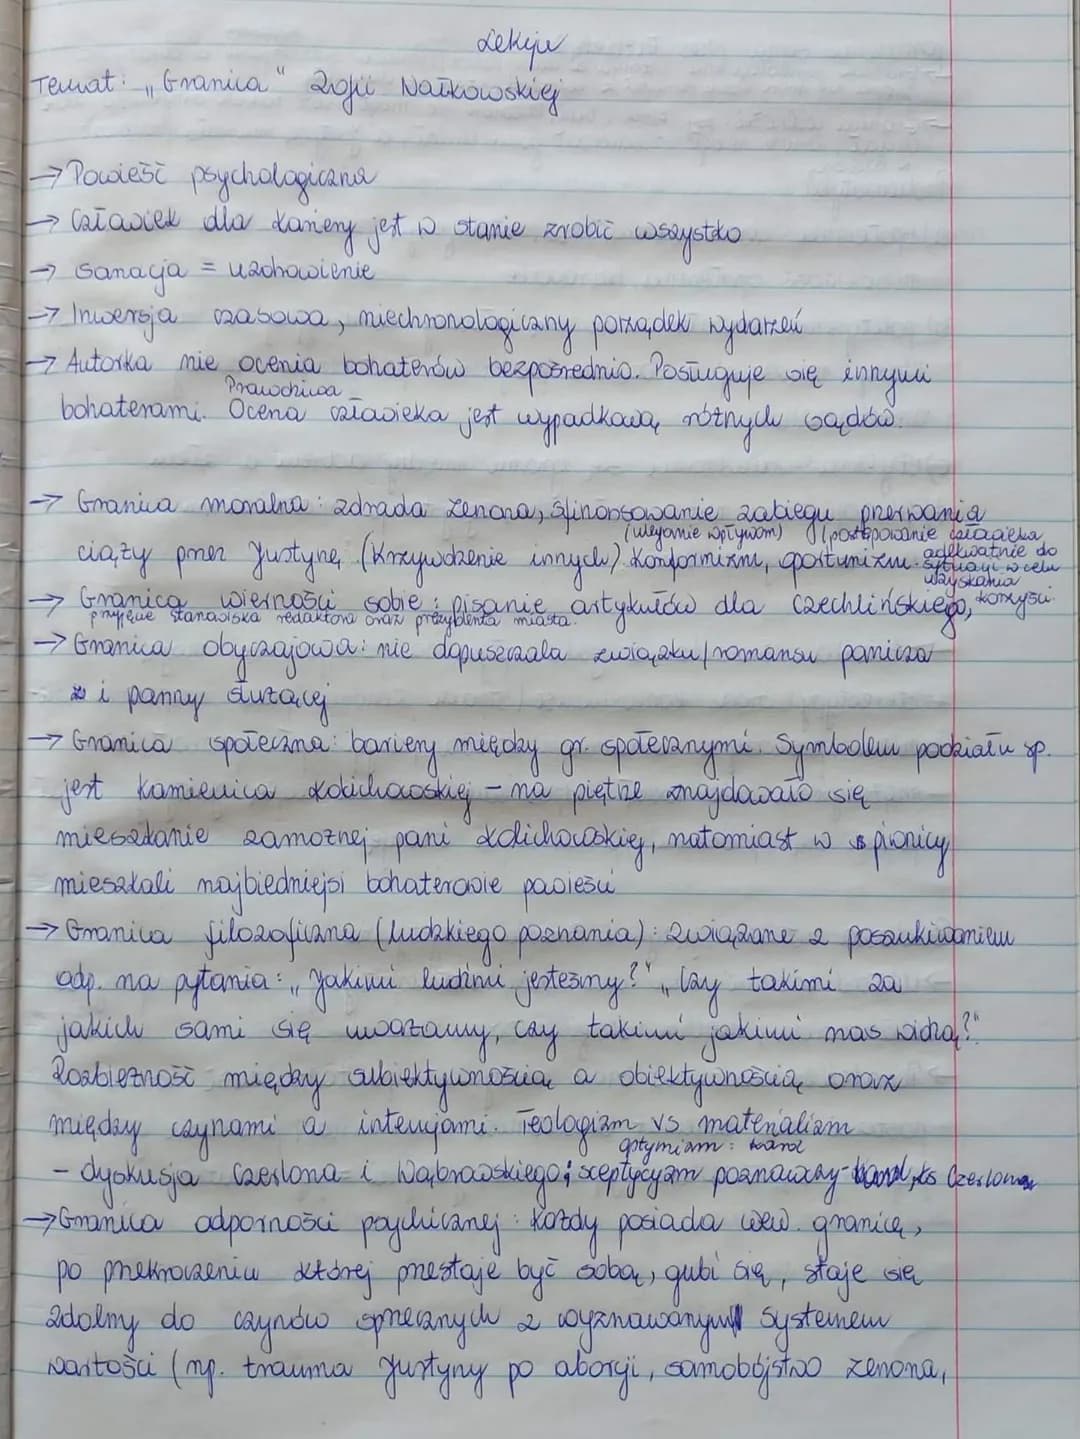 Lekcja
Temat: „Granica" Zofii Nałkowskiej
→ Powieść psychologiczna
→ Człowiek dla kariery jest w stanie zrobić wszystko
→ Sanacja = uzdrowienie
→ Inwersja czasowa, niechronologiczny porządek wydarzeń
→ Autorka nie ocenia bohaterów bezpośrednio. Posługuje się innymi
Prawdziwa
bohaterami. Ocena człowieka jest wypadkową różnych sądów.
→ Granica moralna: zdrada Zenona, sfinansowanie zabiegu przerwania
(uleganie wpływom) (postępowanie człowieka
ciąży przez Justynę. (Krzywdzenie innych) Konformizm, oportunizm. adekwatnie do
sytuacji w celu
uzyskania
→ Granica wierności sobie: pisanie artykułów dla Czechlińskiego, korzyści.
przyjęcie stanowiska redaktora oraz prezydenta miasta.
→ Granica obyczajowa: nie dopuszczała związku/romansu panicza
i panny służącej
→ Granica społeczna: bariery między gr. społecznymi. Symbolem podziału sp.
jest kamienica Kolichowskiej – na piętrze znajdowało się
mieszkanie zamożnej pani Kolichowskiej, natomiast w piwnicy
mieszkali najbiedniejsi bohaterowie powieści
→ Granica filozoficzna (ludzkiego poznania): Związane z poszukiwaniem
odp. na pytania: „Jakimi ludźmi jesteśmy?" „Czy takimi za
jakich sami się uważamy, czy takimi jakimi nas widzą?"
Rozbieżność między subiektywnością a obiektywnością oraz
między czynami a intencjami. Teologizm vs materializm
optymizm: Karol
– dyskusja Czerlona i Wąbrowskiego; sceptycyzm poznawczy- ks Czerlon
→ Granica odporności psychicznej: Każdy posiada wew. granicę,
po przekroczeniu której przestaje być sobą, gubi się, staje się
zdolny do czynów sprzecznych z wyznawanym systemem
wartości (np. trauma Justyny po aborcji, samobójstwo Zenona,